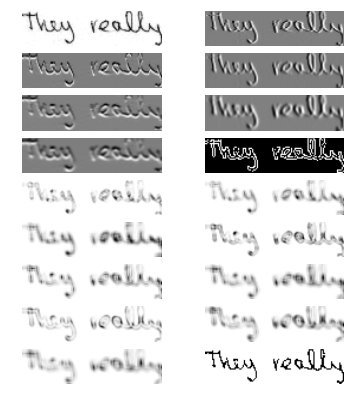 They really They really
They really They really
They really They really
They really They really
They really They really
They really They really
They really They really
They really They really
They really They really